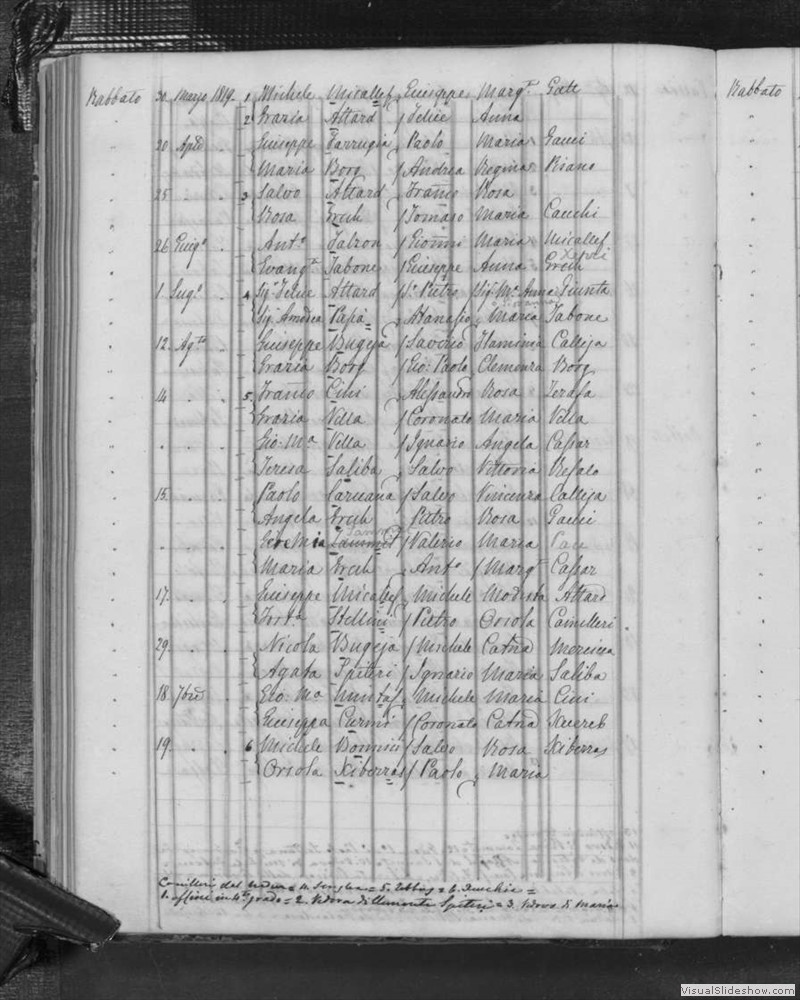 Rabbato 30 Marzo 1819 1 Michele Micallef Giuseppe Marg.ta Gatt Rabbato
2 Grazia Attard Felice Anna
20 Ap.le Giuseppe Farrugia Paolo Maria Gauci
Maria Borg Andrea Regina Pisano
25 3 Salvo Attard Fran.co Rosa
Rosa Grech Tomaso Maria Cauchi
26 Giug.o Ant.o Falzon Giovni Maria Micallef
Evang.ta Tabone Giuseppe Anna
1 Lug.o 4 Sig.r Felice Attard S.r Pietro Sig.ra M.a Anna Giunta
Sig.a Papa Atanasio Maria Tabone
12 Ag.to Giuseppe Bugeja Saverio Flaminia Calleja
Grazia Borg Gio: Paolo Clemenza Borg
14 5 Fran.co Cini Alessandro Rosa Zerafa
Grazia Vella Coronato Maria Vella
Gio: M.a Vella Ignazio Angela Cassar
Teresa Saliba Salvo Vittoria Refalo
15 Paolo Caruana Salvo Vincenza Calleja
Angela Grech Pietro Rosa Gauci
Geremia Zammit Valerio Maria Pace
Maria Grech Ant.o Marg.ta Cassar
17 Giuseppe Micallef Michele Modesta Attard
Fort.a Stellini Pietro Orsola Camilleri
29 Nicola Bugeja Michele Catna Mercieca
Agata Spiteri Ignazio Maria Saliba
18 7bre Gio: M.a Muntaf Michele Maria Cini
Giuseppa Curmi Coronato Catna Xuereb
19 6 Michele Bonnici Salvo Rosa Xiberras
Orsola Xiberras Paolo Maria
= 4. Senglea = 5. Zebbug = 6. Zurrico =
1. affini in 4.to grado = 2. Vedova di Clemente Spiteri = 3. Vedova di Mario
VisualSlideshow.com